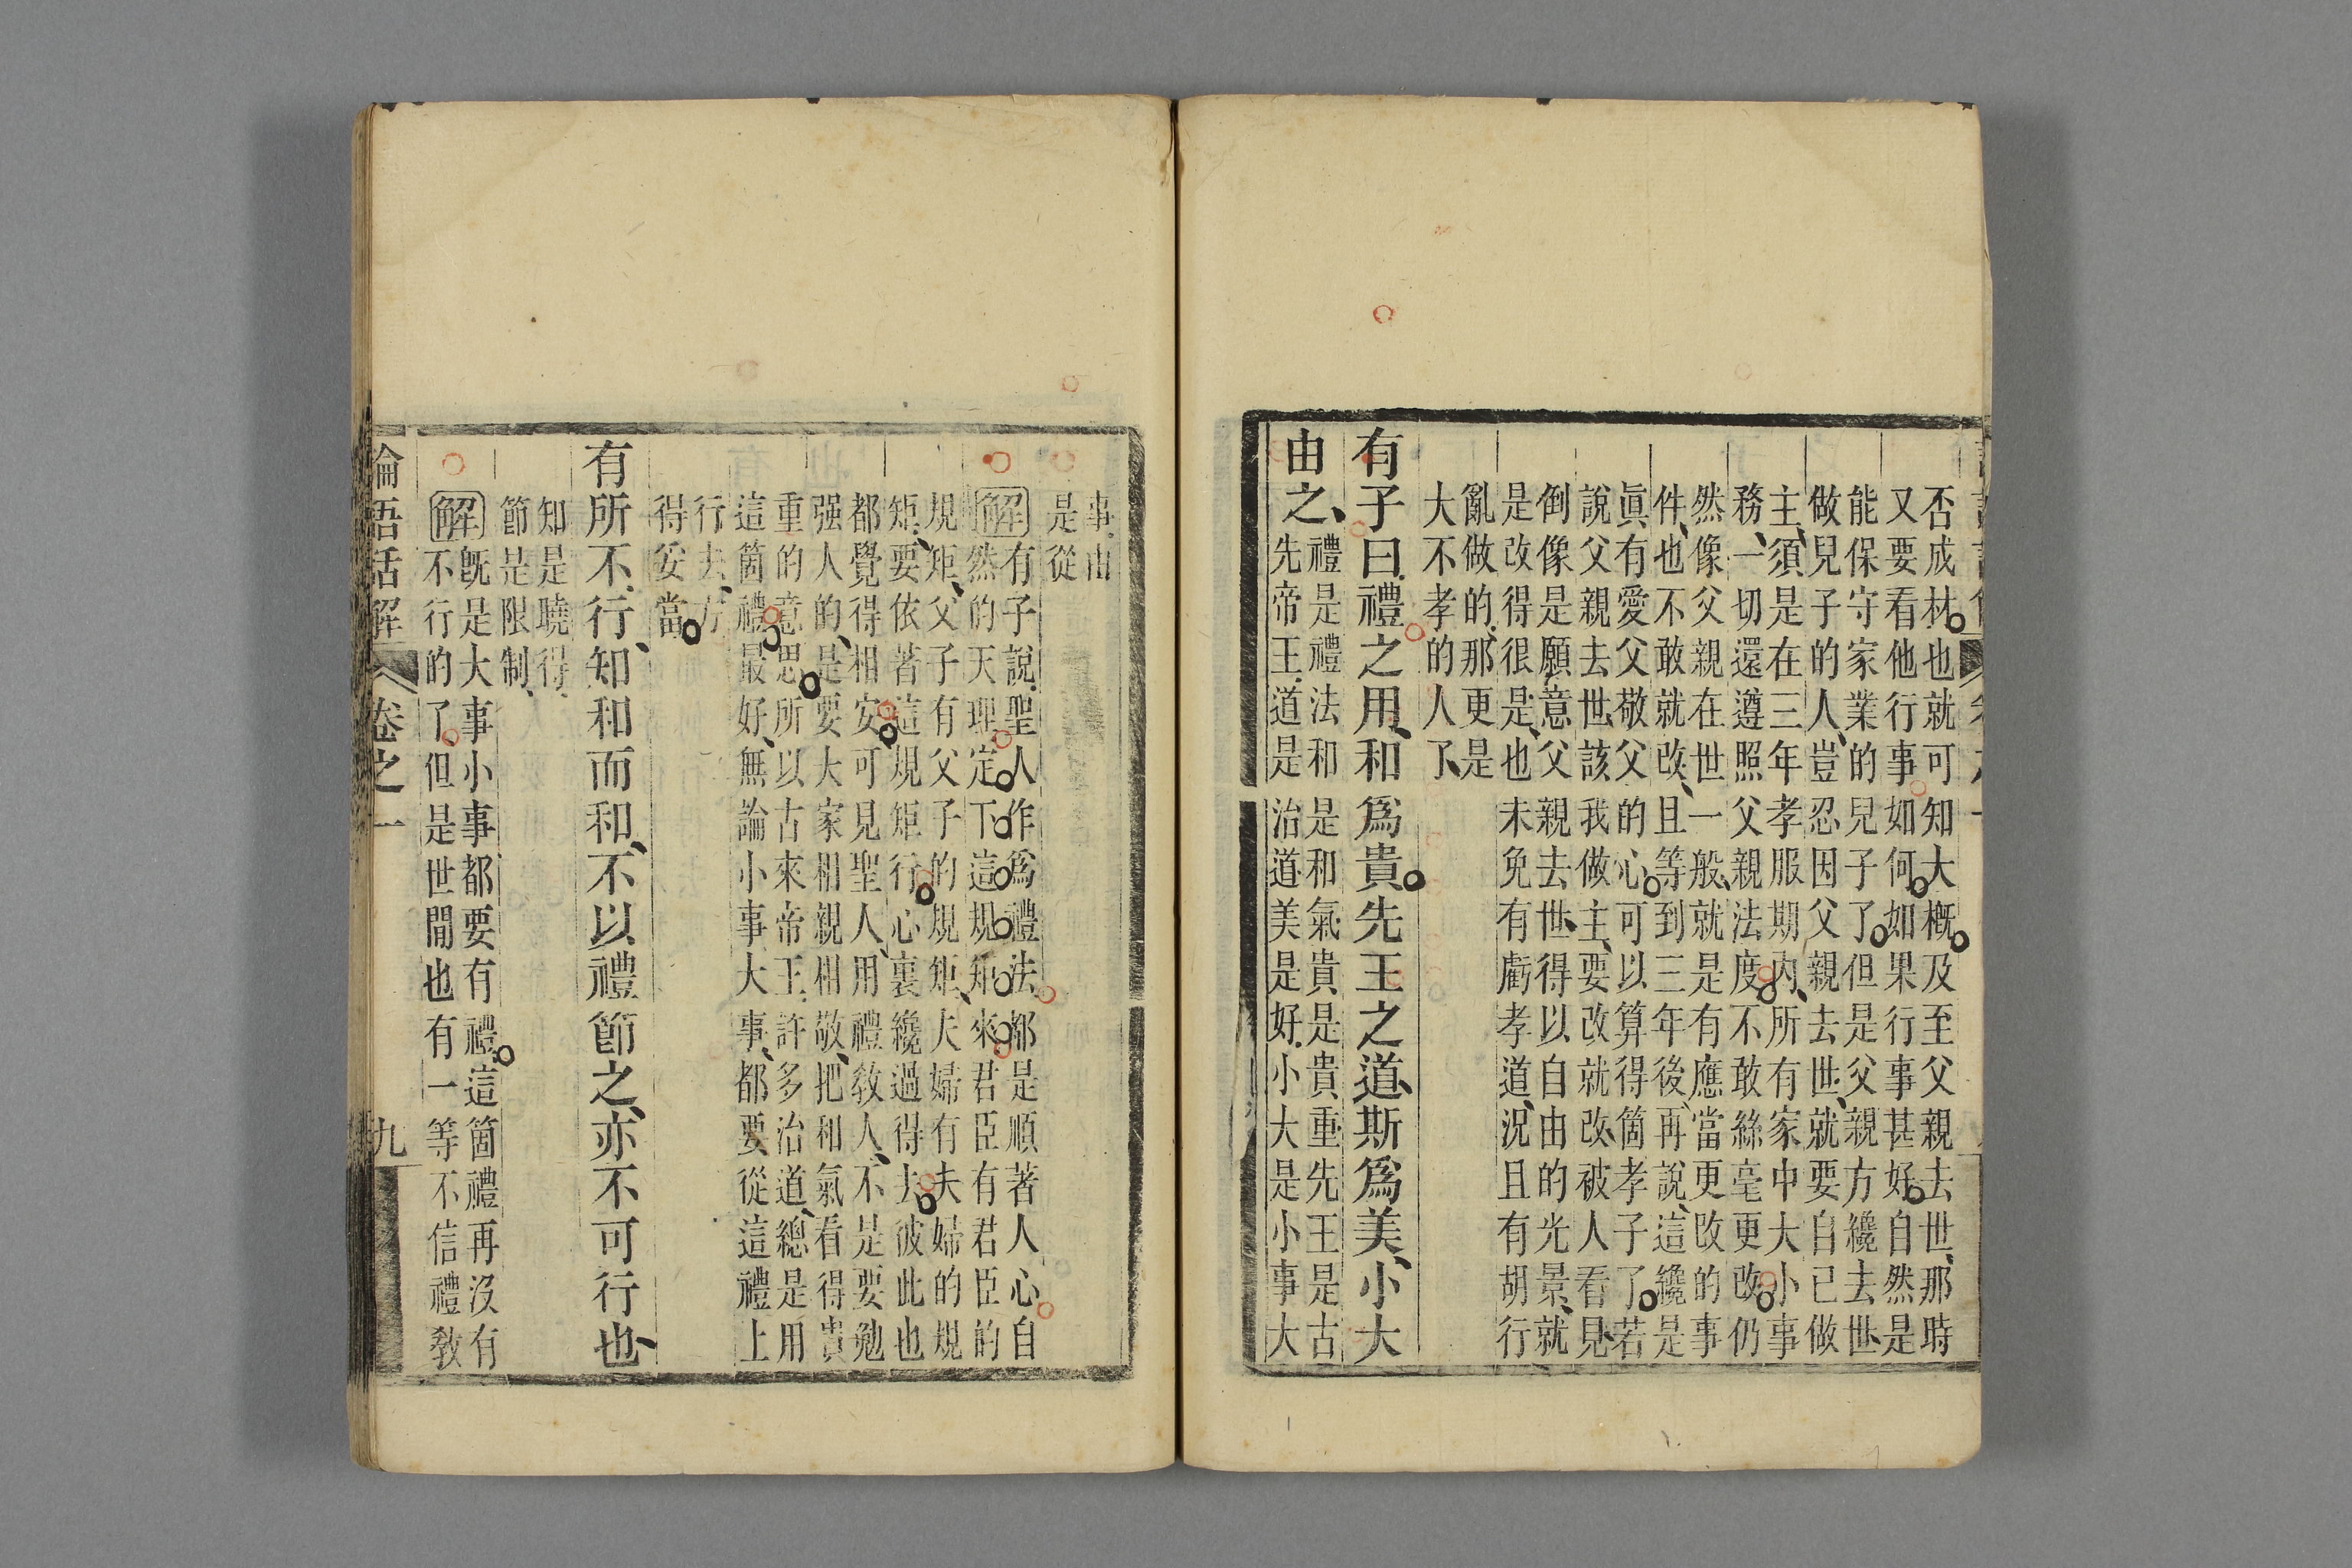 否成材也就可知大概及至父親去世那時
又要看他行事如何如果行事甚好自然是
能保守家業的兒子了但是父親方纔去世
做兒子的人豈忍因父親去世就要自已做
主須是在三年孝服期內所有家中大小事
務一切還遵照父親法度不敢絲毫更改仍
然像父親在世一般就是有應當更改的事
件也不敢就改且等到三年後再說這纔是
眞有愛父敬父的心可以算得箇孝子了若
說父親去世該我做主要改就改被人看見
倒像是願意父親去世得以自由的光景就
是改得很是也未免有虧孝道況且有胡行
亂做的那更是
大不孝的人了
有子曰禮之用和爲貴先王之道斯爲美小大
由之
禮是禮法和是和氣貴是貴重先王是古
先帝王道是治道美是好小大是小事大
事由
是從
解
有子說聖人作爲禮法都是順著人心自
然的天理定下這規矩來君臣有君臣的
規矩父子有父子的規矩夫婦有夫婦的規
矩要依著這規矩行心裏纔過得去彼此也
都覺得相安可見聖人用禮敎人不是要勉
强人的是要大家相親相敬把和氣看得貴
重的意思所以古來帝王許多治道總是用
這箇禮最好無論小事大事都要從這禮上
行去方
得安當
有所不行知和而和不以禮節之亦不可行也
知是曉得
節是限制
解
既是大事小事都要有禮這箇禮再沒有
不行的了但是世間也有一等不信禮敎
論語話解 卷之一 九